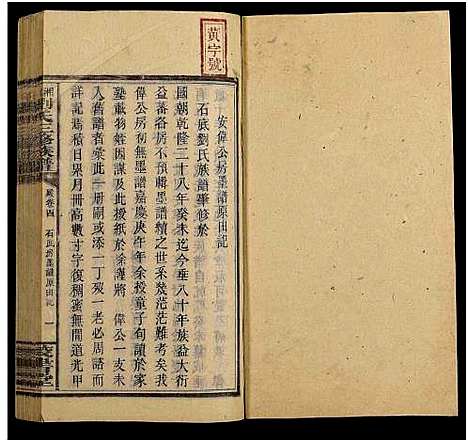 黃字號
安偉公房墨譜原由記
石底劉氏族譜肇修於
國朝乾隆二十八年癸未迄今垂八十年族益大衍
益蕃各房不預輯墨譜續之世系茫茫稽考難矣我
偉公房初無墨譜嘉慶庚午年余授童子句讀於家
塾載物姪因謀及此授紙於余謹將　偉公一支未
入舊譜者彙此一冊嗣或添一丁歿一老必周語而
詳記積日累月冊高數寸字復稠蜜無間道光甲
湘劉氏三修族譜
卷四
石底房墨譜原由記
一